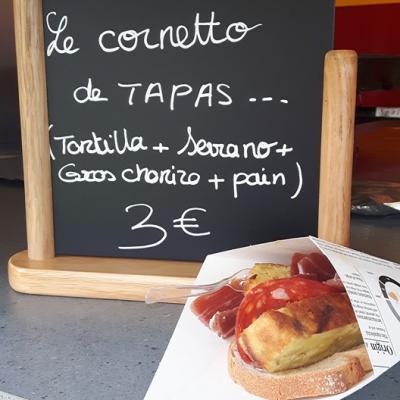 Le cornetto
de TAPAS ...
(Tortilla + Serrano +
Gros chorizo + pain)
3 €
Origin